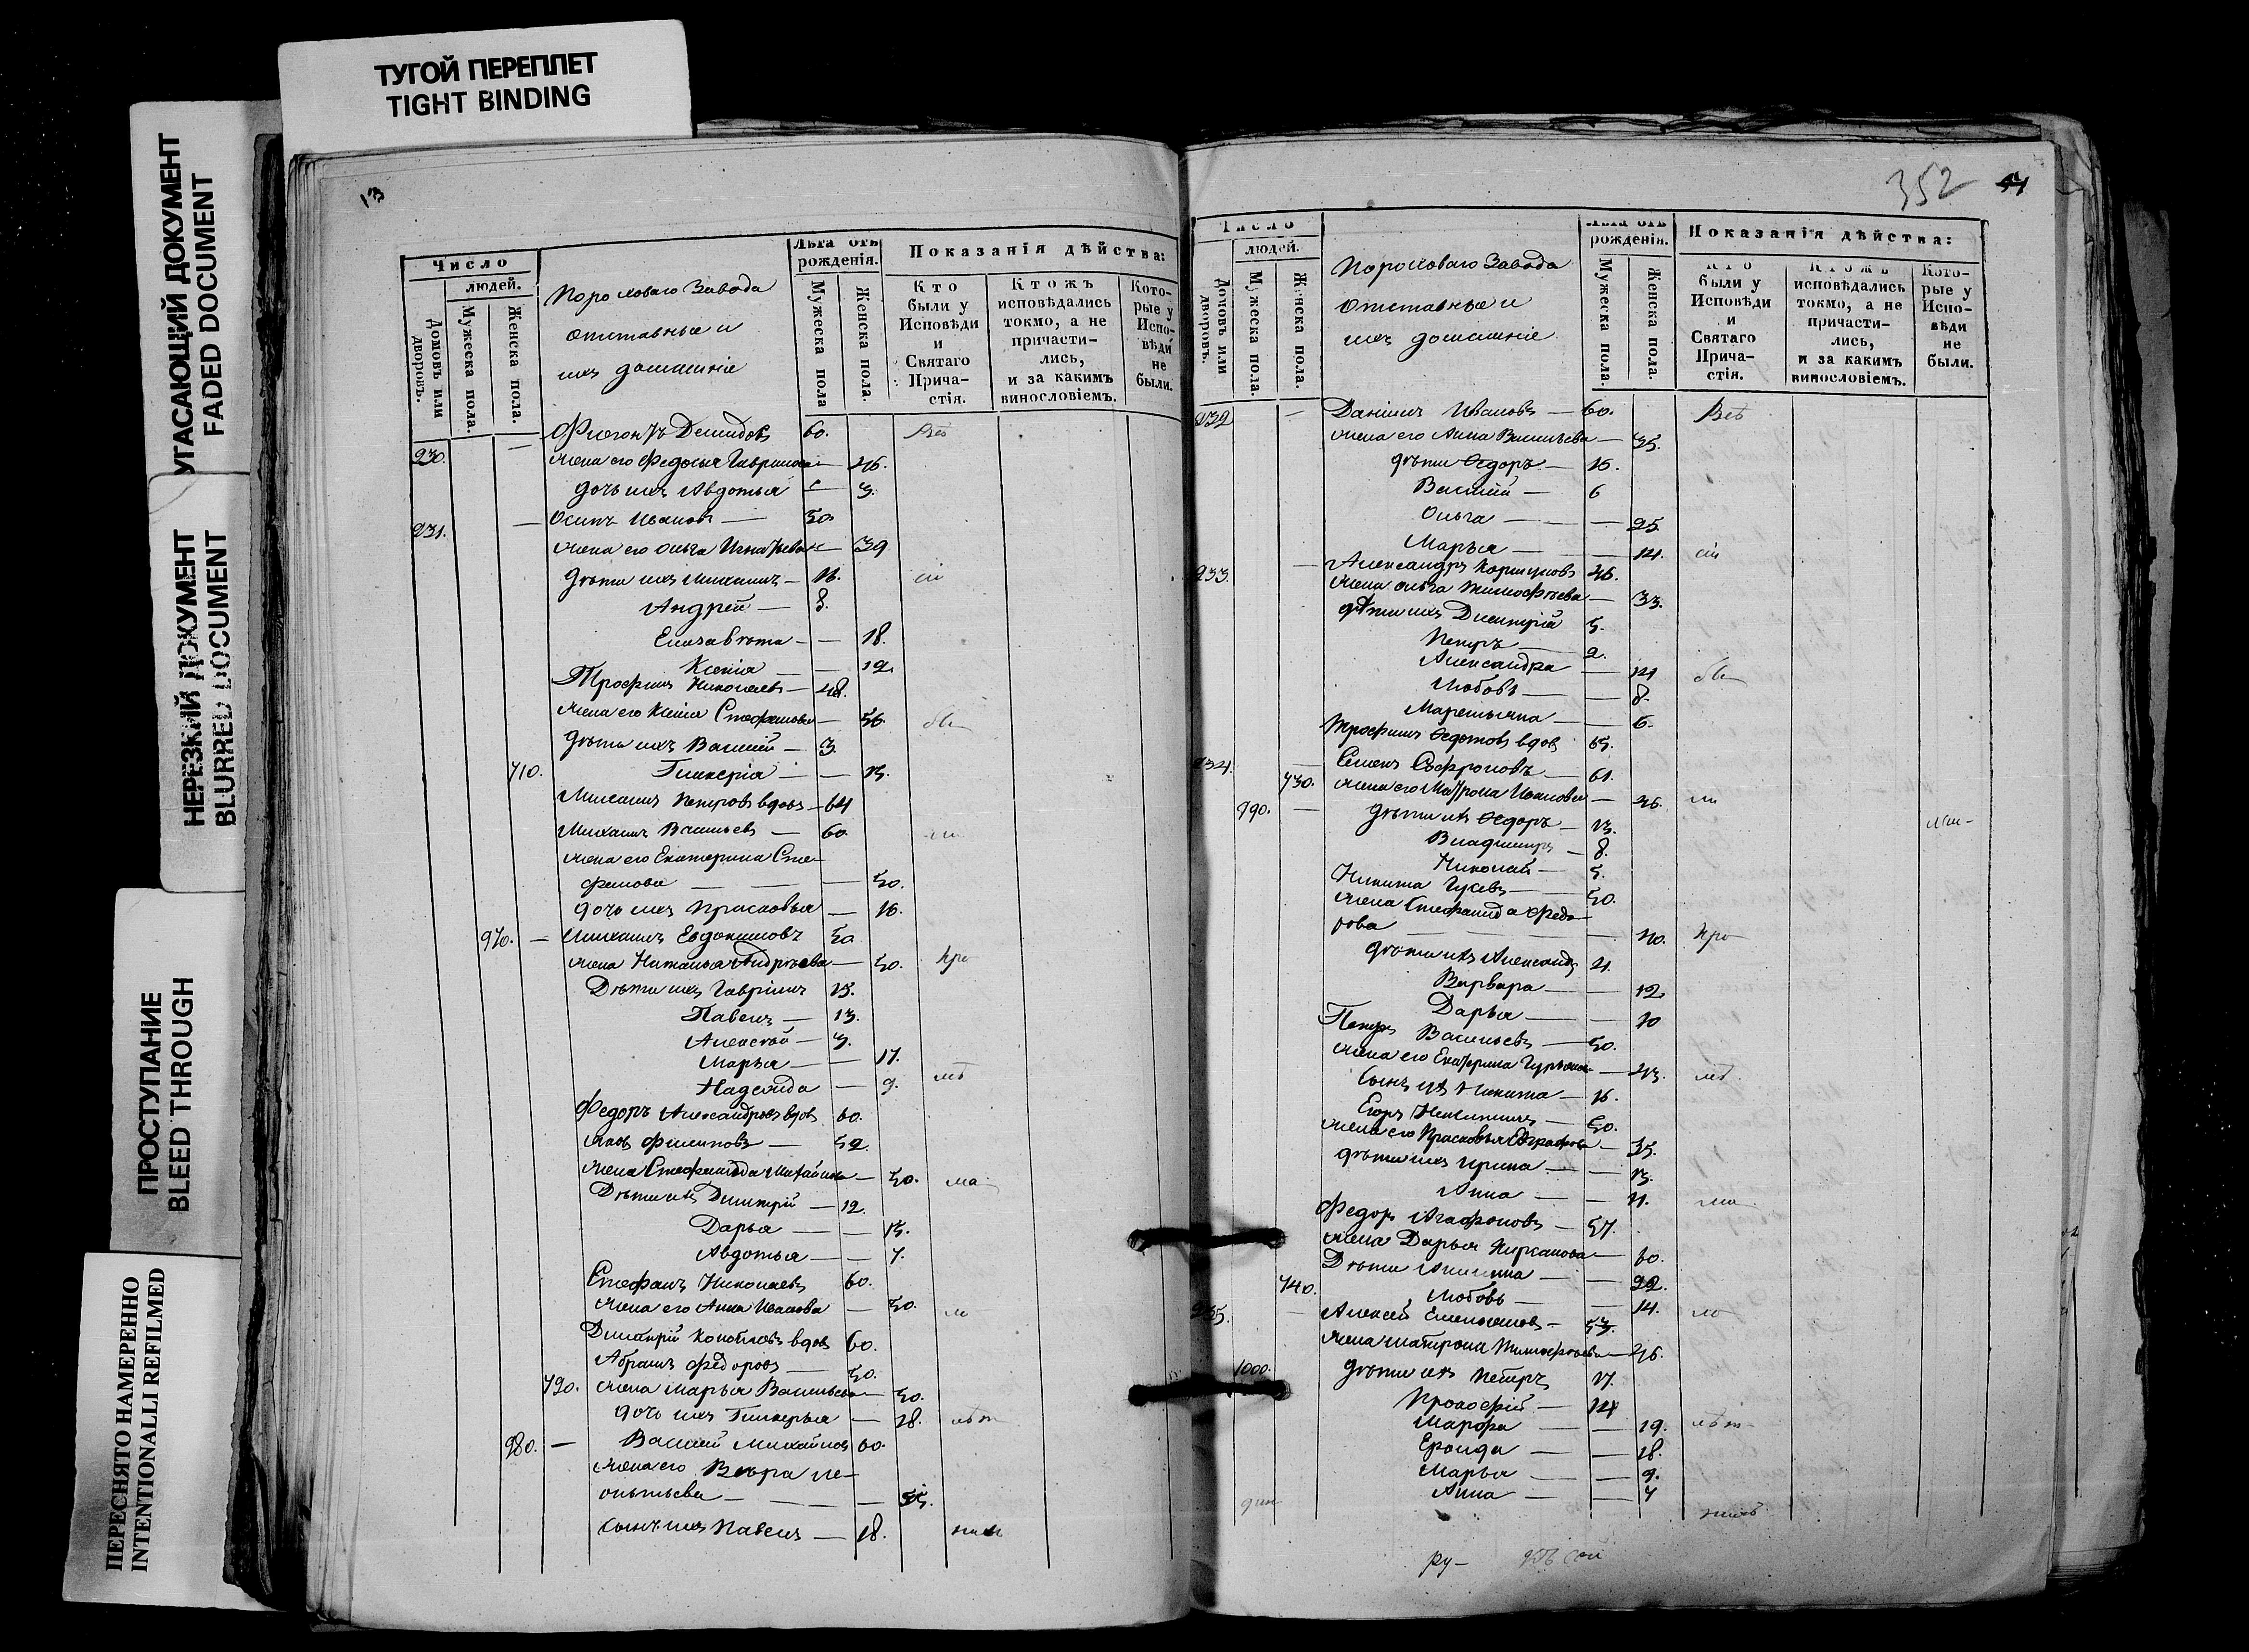 ТУГОЙ ПЕРЕПЛЕТ
TIGHT BINDING
УГАСАЮЩИЙ ДОКУМЕНТ
FADED DOCUMENT
НЕРЕЗКИЙ ДОКУМЕНТ
BLURRED DOCUMENT
ПРОСТУПАНИЕ
BLEED THROUGH
ПЕРЕСНЯТО НАМЕРЕННО
INTENTIONALLI REFILMED
13
Число
людей.
Домовъ или дворовъ.
Мужеска пола.
Женска пола.
Пороховаго Завода
отставные и
ихъ домашніе
Лѣта отъ рожденія.
Мужеска пола
Женска пола.
Показанія дѣйства:
Кто были у Исповѣди и Святаго Прича-стія.
Ктожъ исповѣдались токмо, а не причасти-лись, и за какимъ винословіемъ.
Кото-рые у Испо-вѣди не были.
230. — Демидовъ 60. Всѣ
жена его Федосья Гаврилова — 46.
дочь ихъ Авдотья — 3.
231. — Осипъ Ивановъ — 50.
жена его Ольга Игнатьева — 39
дѣти ихъ Михаилъ — 16. сіи
Андрей — 8.
Елизавѣта — — 18.
Ксенія — — 12.
Трофимъ Николаевъ — 48.
жена его Ксенія Стефанова — 56.
дѣти ихъ Василій — 3
710. Гликерія — — 15.
Михаилъ Петровъ вдовъ — 64
Михаилъ Васильевъ — 60.
жена его Екатерина Сте-
фанова — — — 50.
дочь ихъ Прасковья — 16.
970. — Михаилъ Евдокимовъ 50
жена Наталья Андрѣева — 50. Кре
Дѣти ихъ Гавріилъ 15.
Павелъ — 13.
Алексѣй — 3.
Марья — — 17.
Надежда — 9.
Федоръ Александровъ вдовъ 60.
Яковъ Филиповъ — 52.
жена Стефанида Михайлова — 50.
Дѣти ихъ Димитрій — 12.
Дарья — — 15.
Авдотья — — 7.
Стефанъ Николаевъ 60.
жена его Анна Иванова — 50.
Димитрій вдовъ 60.
Абрамъ Федоровъ — 50.
720. жена Марья Васильева — 50.
дочь ихъ Гликерья — 18. лѣт
980. — Василій Михайловъ 60.
жена его Вѣра Ле-
онтьева — — — — 55.
сынъ ихъ Павелъ — 18.
352
Число
людей.
Домовъ или дворовъ.
Мужеска пола.
Женска пола.
Пороховаго Завода
отставные и
ихъ домашніе
Лѣта отъ рожденія.
Мужеска пола.
Женска пола.
Показанія дѣйства:
Кто были у Исповѣди и Святаго Прича-стія.
Ктожъ исповѣдались токмо, а не причасти-лись, и за какимъ винословіемъ.
Кото-рые у Испо-вѣди не были.
232 — Даніилъ Ивановъ — 60. Всѣ
жена его Анна Васильева — 35.
дѣти Ѳедоръ — 16.
Василій — 6
Ольга — — — 25.
Марья — — 14. сіи
233. — Александръ 46.
жена Ольга Тимофѣева — 33.
дѣти ихъ Димитрій 5.
Петръ — 2.
Александра — 14
Любовь — — 8.
Маремьяна — — 6.
Трофимъ Ѳедотовъ вдовъ 65.
234. — Семенъ Сафроновъ — 61.
730. жена его Матрона Иванова — 46.
990. — дѣти ихъ Ѳедоръ — 13.
Владимиръ — 8.
Николай — 5.
Никита Гусевъ — 50.
жена Стефанида Федо-
рова — — — 40. Кре
дѣти ихъ Александръ 4.
Варвара — — 12
Дарья — — 10
Петръ Васильевъ — 50.
жена его Екатерина — 43.
Сынъ ихъ Никита — 16.
Егоръ — 50.
жена его Прасковья Евграфова — 35.
дѣти ихъ Ирина — — 13.
Анна — — 11.
Федоръ Агафоновъ — 57.
жена Дарья — 60.
Дѣти — — 22.
740. Любовь — — 14.
235. — Алексѣй Емельяновъ — 53.
жена Матрона Тимофѣева — 46.
1000. дѣти ихъ Петръ 17.
Прокофій — 14
Марфа — — 19. лѣт-
Ераида — — 18.
Марья — — 9.
Анна — — 7
ру-